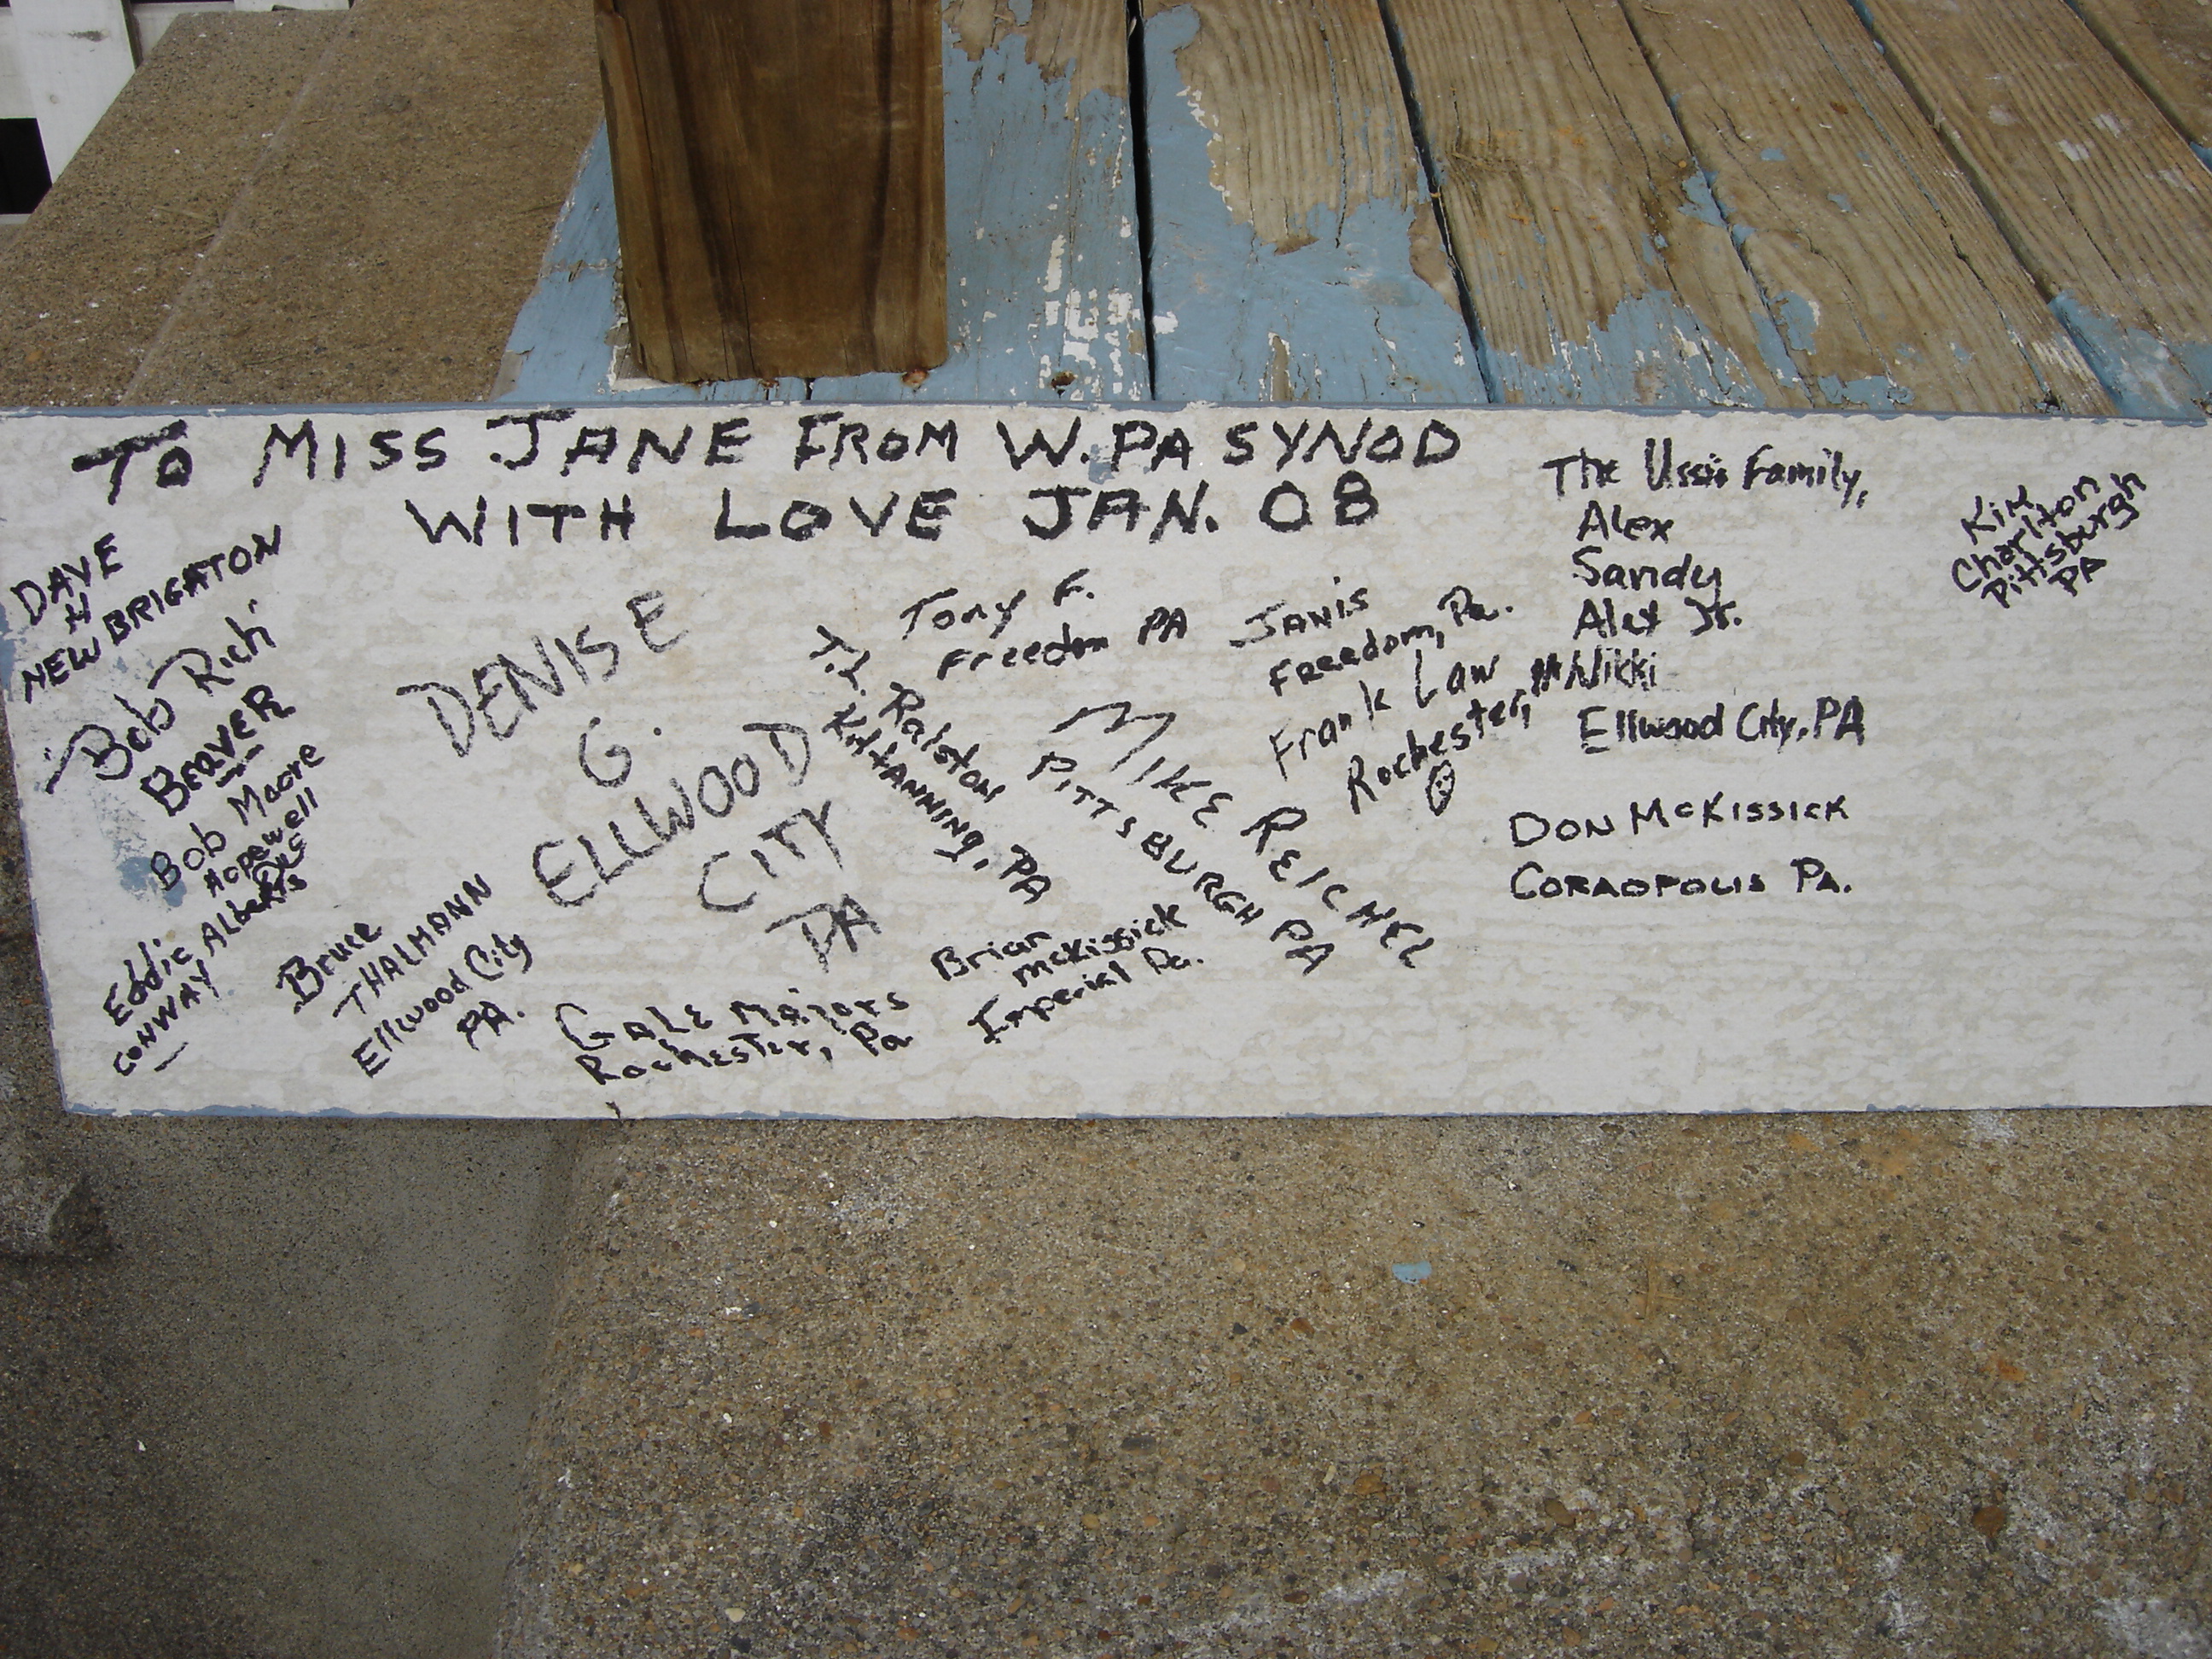 TO MISS JANE FROM W. PA SYNOD
WITH LOVE JAN. 08
DAVE
H
NEW BRIGATON
Bob Rich
BEAVER
Bob Moore
Hopewell
Eddie Alberts
CONWAY
Bruce
THALMANN
Ellwood City
PA.
DENISE
G.
ELLWOOD
CITY
PA
GALE Majors
Rochester, Pa
Tony F.
Freedom PA
T.J. Ralston
KittANNING, PA
MIKE REICHEL
PITTSBURGH PA
Brian
McKissick
Imperial Pa.
JANIS
Freedom, Pa.
Frank Law
Rochester,
The Family,
Alex
Sandy
Alex Jr.
Nikki
Ellwood City, PA
DON McKISSICK
CORAOPOLIS PA.
Kim
Charlton
Pittsburgh
PA